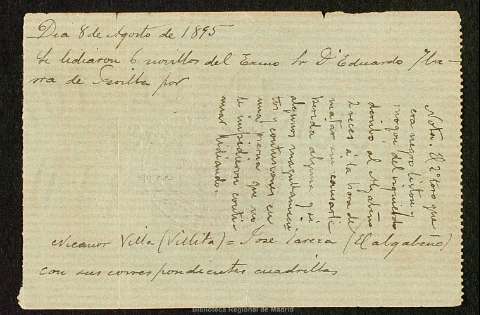 Dia 8 de Agosto de 1895
Se lidiaron 6 novillos del Excmo Sr Dn Eduardo Yba-
rra de Sevilla por
Nota. El 2º toro que
era negro liston y
mogon del izquierdo
derribó al Algabeño
2 veces á la hora de
matar sin causarle
herida alguna y si
algunos magullamien
tos y contusiones en
una pierna que no
le impidieron conti
nuar lidiando.
Nicanor Villa (Villita) = José García (El algabeño)
con sus correspondientes cuadrillas
Biblioteca Regional de Madrid